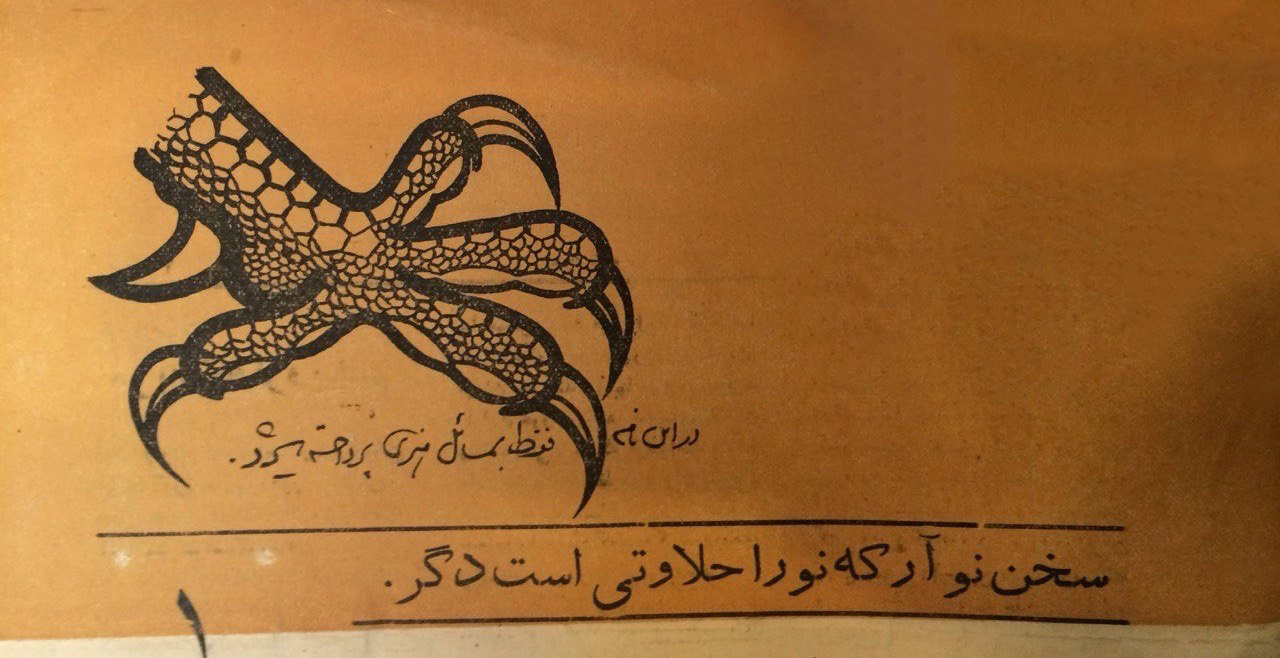 در این نامه فقط بمسائل هنری پرداخته میشود.
سخن نو آر که نو را حلاوتی است دگر.
۱